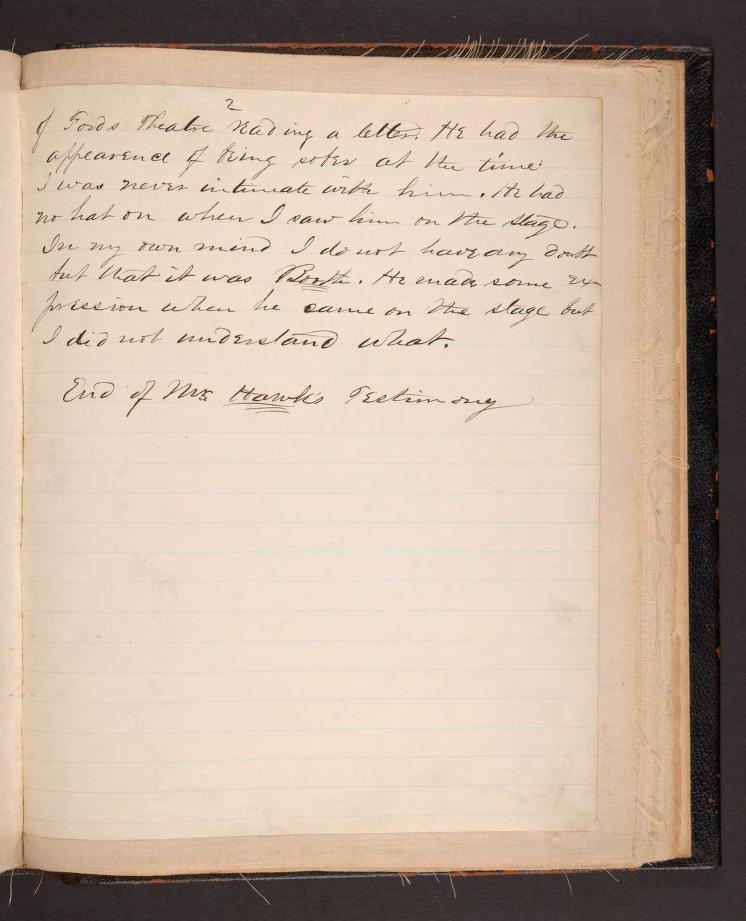 2
of Fords Theatre reading a letter. He had the
appearence of being sober at the time.
I was never intimate with him. He had
no hat on when I saw him on the stage.
In my own mind I do not have any doubt
but that it was Booth. He made some ex-
pression when he came on the stage but
I did not understand what.
End of Mr. Hawk's Testimony